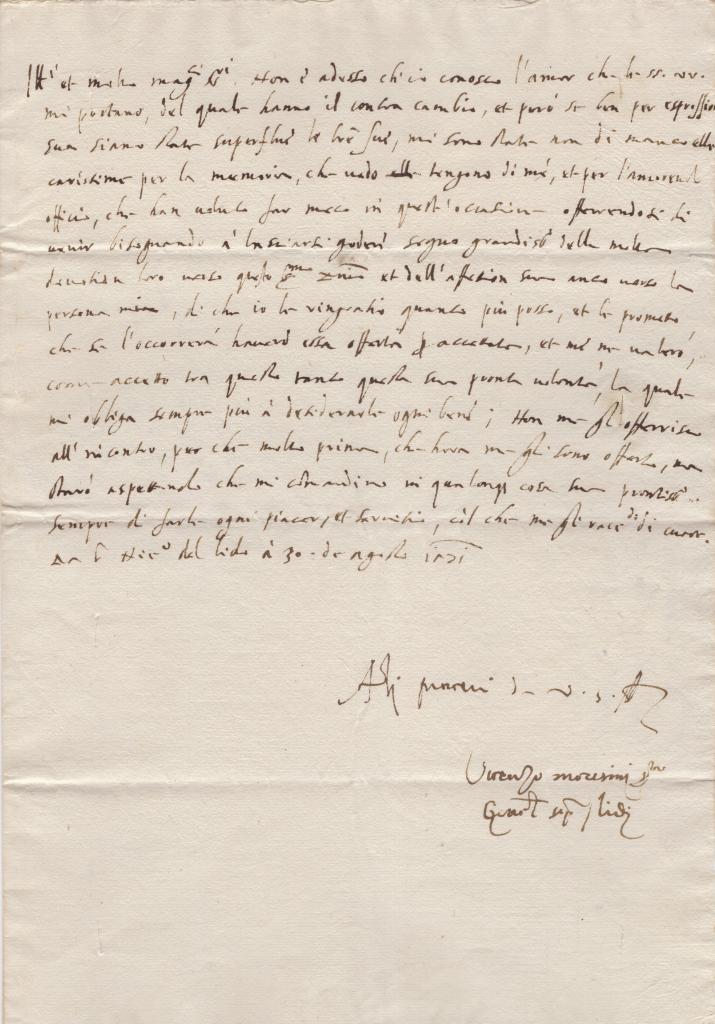 et molto mag.ci S.ri. Non è adesso ch'io conosco l'amor che le ss. vv.
mi portano, del quale hanno il contra cambio, et però se ben per espression
sua siano state superflue le lre sue, mi sono state non di manco
carissime per la memoria, che vedo tengono di me, et per l'amorevol
officio, che han voluto far meco in quest'occasion offerendosi di
venir bisognando à lasciarsi goder segno grandiss.o della molta
devotion loro verso questo et dell'affetion sua anco verso la
persona mia, di che io le ringratio quanto più posso, et le prometto,
che se l'occorrerà haverò essa offerta p accettata, et me ne valerò,
come accetto tra questo tanto questa sua pronta volontà, la quale
mi obliga sempre più à desiderarle ogni bene; Non me gli offerisco
all'incontro, per che molto prima, che hora me gli sono offerto, ma
starò aspettando che mi comandino in qualong cosa sua prontiss.o
sempre di farle ogni piacer, et servitio, co'l che me gli racc.do di cuor.
Da S. Nic.o del lido à 30 de agosto 1571
Alli piaceri d. v. s.
Vicenzo moresini
Gen.l lidi